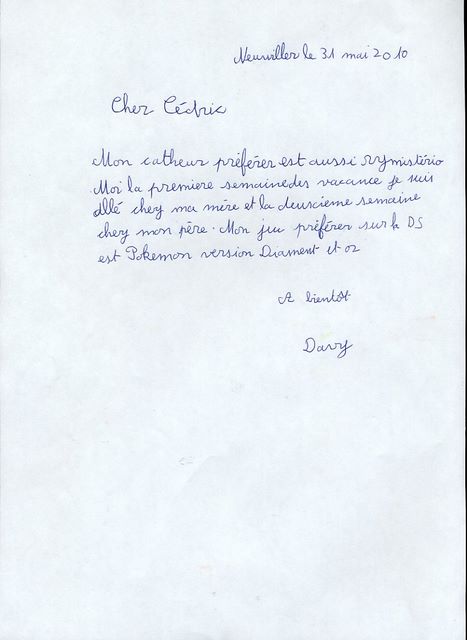 Neuviller le 31 mai 2010
Cher Cédric
Mon catheur préférer est aussi RYmistério
Moi la premiere semaine des vacance je suis
allé chez ma mère et la deuscieme semaine
chez mon père. Mon jeu préférer sur la DS
est Pokemon version Diament et or
A bientôt
Davy